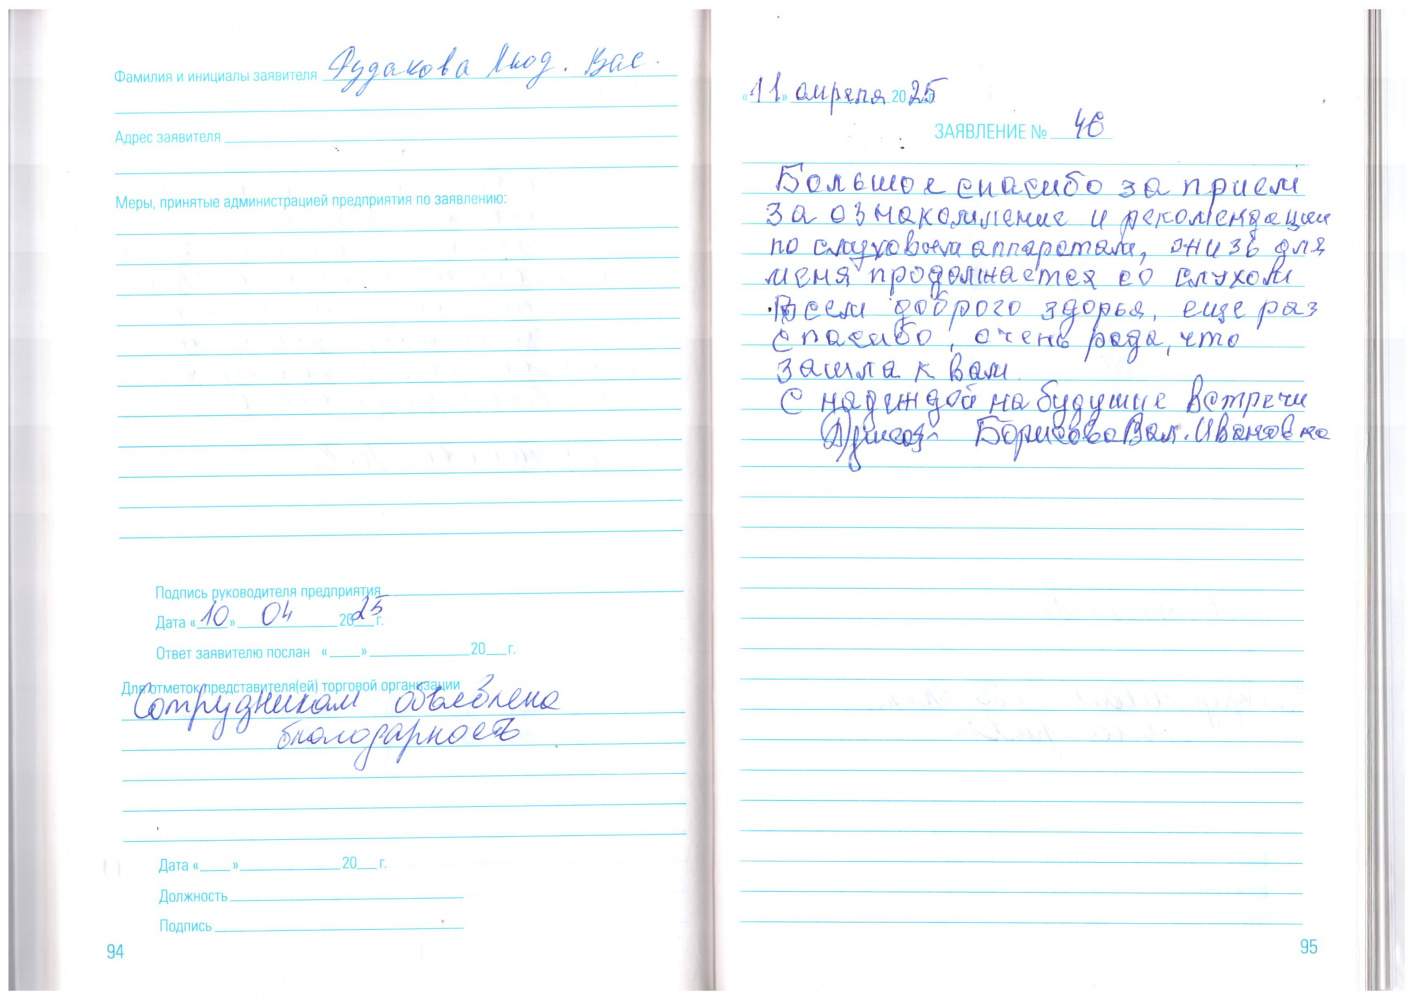 Фамилия и инициалы заявителя Рудакова Люд. Вас.
Адрес заявителя
Меры, принятые администрацией предприятия по заявлению:
Подпись руководителя предприятия
Дата «10» 04 2025 г.
Ответ заявителю послан « » 20 г.
Для отметок представителя(ей) торговой организации
Сотрудникам объявлена
благодарность
Дата « » 20 г.
Должность
Подпись
94
«11» апреля 2025
ЗАЯВЛЕНИЕ № 46
Большое спасибо за прием
за ознакомление и рекомендации
по слуховым аппаратам, жизь для
меня продолжается со слухом
Всем доброго здорья, еще раз
спасибо, очень рада, что
зашла к вам
С надеждой на будущие встречи
Борисова Вал. Ивановна
95